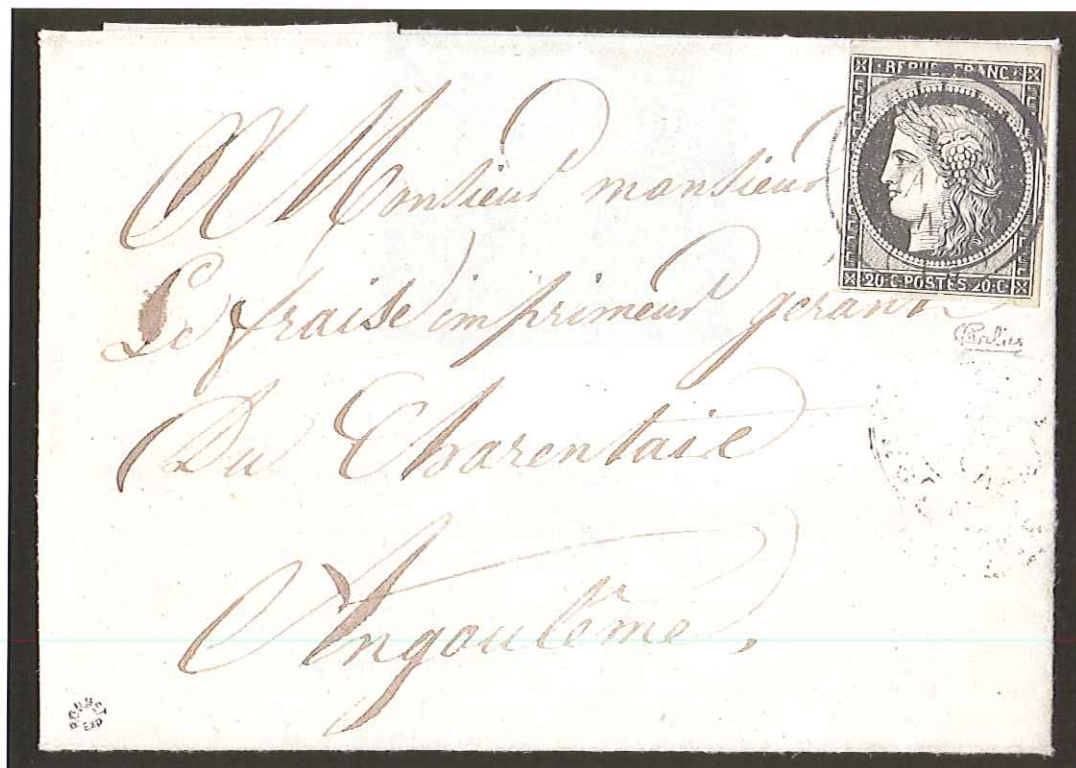 REPUB. FRANC.
20·C·POSTES 20·C
A Monsieur monsieur
Lefraise imprimeur gerant
Du Charentais
Angoulême.